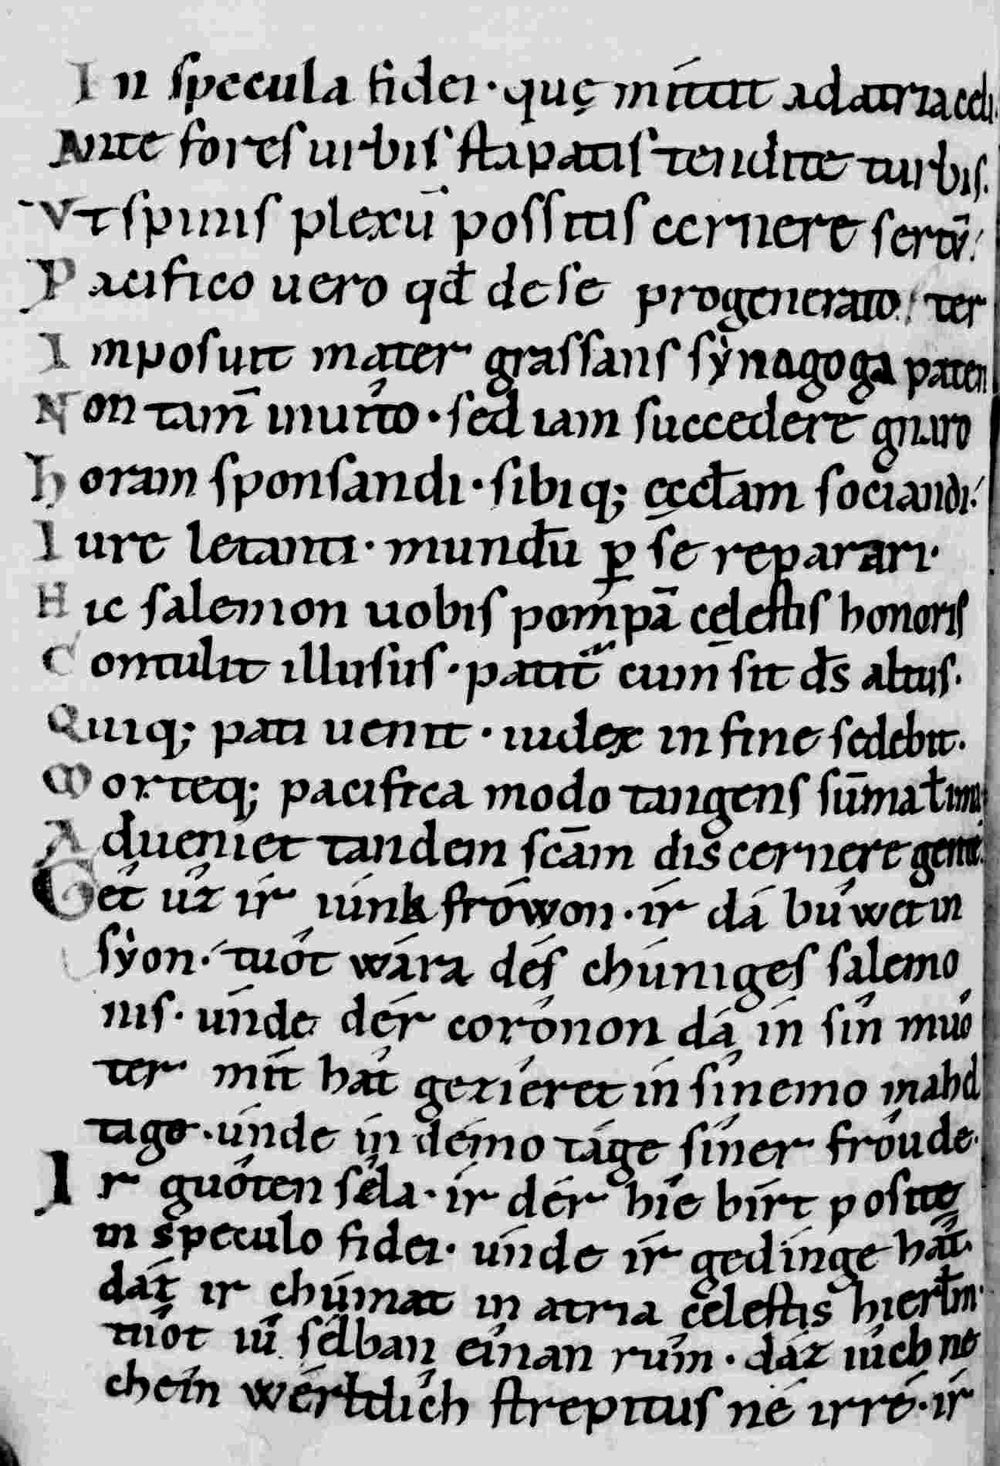 In specula fidei · quę mittit ad atria celi.
Ante fores urbis stapatis tendite turbis.
Vt spinis plexū possitis cernere sertū.
Pacifico uero qđ de se progenerato ter
Imposuit mater grassans sẏnagoga paten
Non tam̄ inuito · sed iam succedere gnaro
Horam sponsandi · sibiq; ęccłam sociandi.
Iure letanti · mundū ꝑ se reparari.
Hic salemon uobis pompā cęlestis honoris
Contulit illusus · patit᷑ cum sit d̄s altus.
Quiq; pati uenit · iudex in fine sedebit.
Morteq; pacifica modo tangens sūmat ima
Adueniet tandem scām discernere gente.
Gét uz ír iúnkfrówon · ír dá búwet in
sẏon · tuót wára dés chúniges sálemo
nis · únde dér corónon dá ín sín muo
ter mít hát gezíeret ín sínemo máhel
tage · únde ín démo táge síner fróude.
Ir guóten séla · ír dér híe bírt positę
in speculo fidei · únde ír gedínge hát.
dáz ír chúmat in atria cęlestis hierłm.
tuót iú sélban éinan rúm · dáz iúch ne
chéin wérltlich strepitus né irré · ír